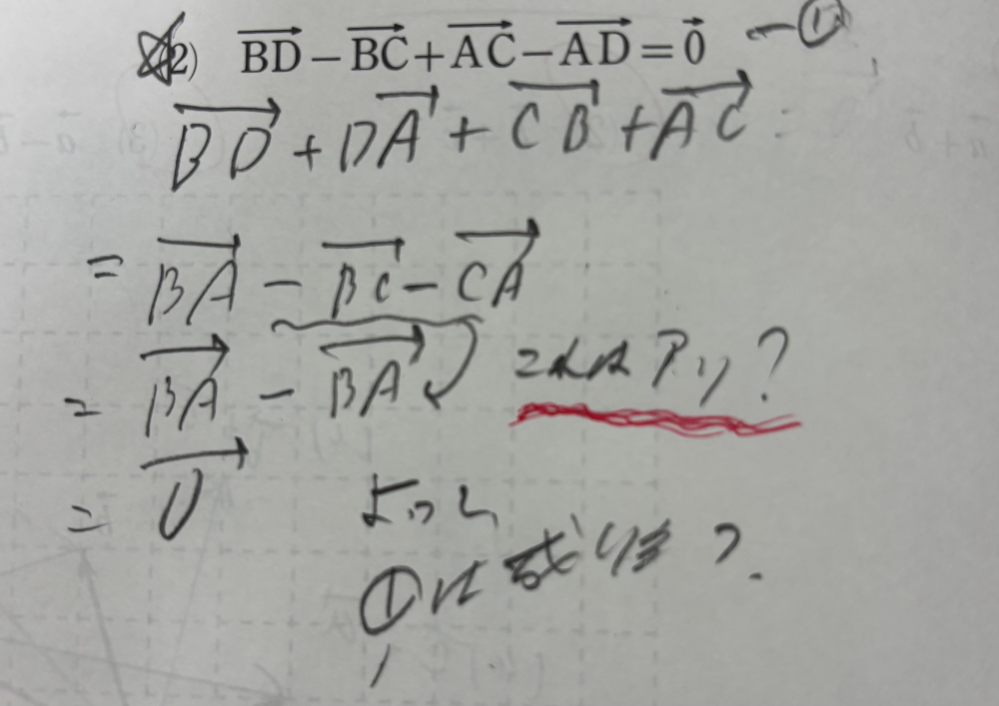 (2) $\overrightarrow{BD}-\overrightarrow{BC}+\overrightarrow{AC}-\overrightarrow{AD}=\vec{0}$ —①
$\overrightarrow{BD}+\overrightarrow{DA}+\overrightarrow{CB}+\overrightarrow{AC}$
$=\overrightarrow{BA}-\overrightarrow{BC}-\overrightarrow{CA}$
$=\overrightarrow{BA}-\overrightarrow{BA}$ これはアリ?
$=\overrightarrow{0}$ よって
①は成り